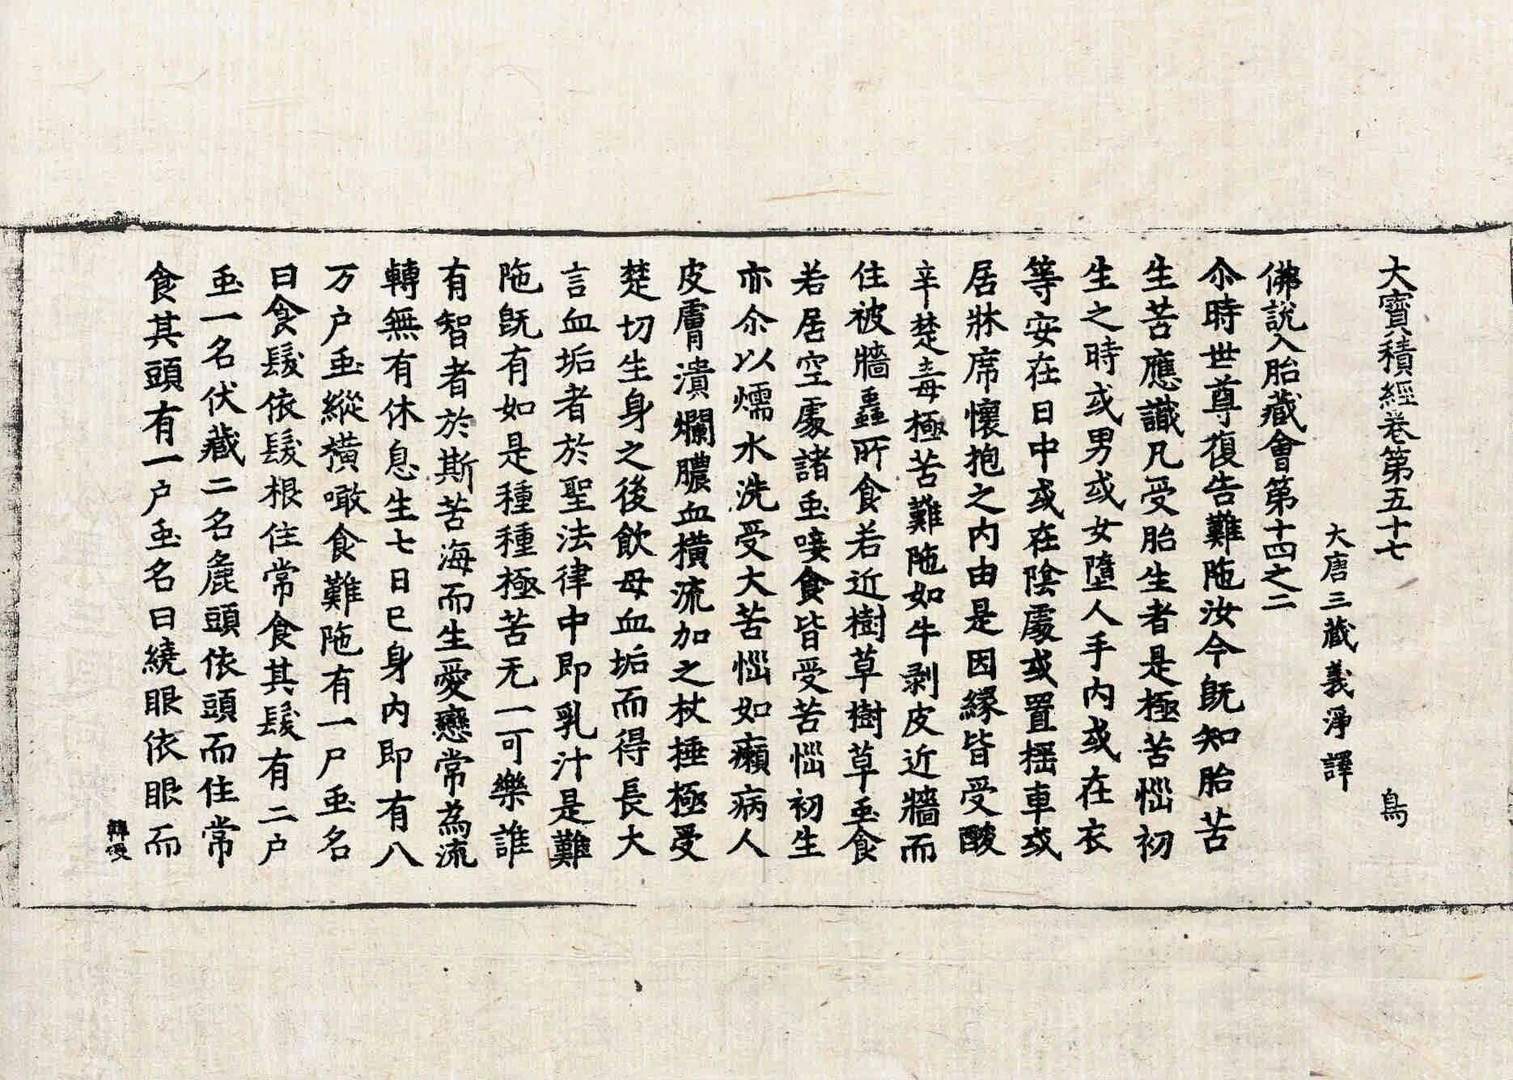 大寶積經卷第五十七 鳥
大唐三藏義淨譯
佛說入胎藏會第十四之二
尒時世尊復告難陁汝今旣知胎苦
生苦應識凡受胎生者是極苦惱初
生之時或男或女墮人手內或在衣
等安在日中或在陰處或置搖車或
居牀席懷抱之內由是因緣皆受酸
辛楚毒極苦難陁如牛剥皮近牆而
住被牆蟲所食若近樹草樹草䖝食
若居空處諸䖝唼食皆受苦惱初生
亦尒以煗水洗受大苦惱如癩病人
皮膚潰爛膿血橫流加之杖捶極受
楚切生身之後飮母血垢而得長大
言血垢者於聖法律中即乳汁是難
陁旣有如是種種極苦无一可樂誰
有智者於斯苦海而生愛戀常為流
轉無有休息生七日已身內即有八
万户䖝縱橫噉食難陁有一户䖝名
曰食髮依髮根住常食其髮有二户
䖝一名伏藏二名麁頭依頭而住常
食其頭有一户䖝名曰繞眼依眼而